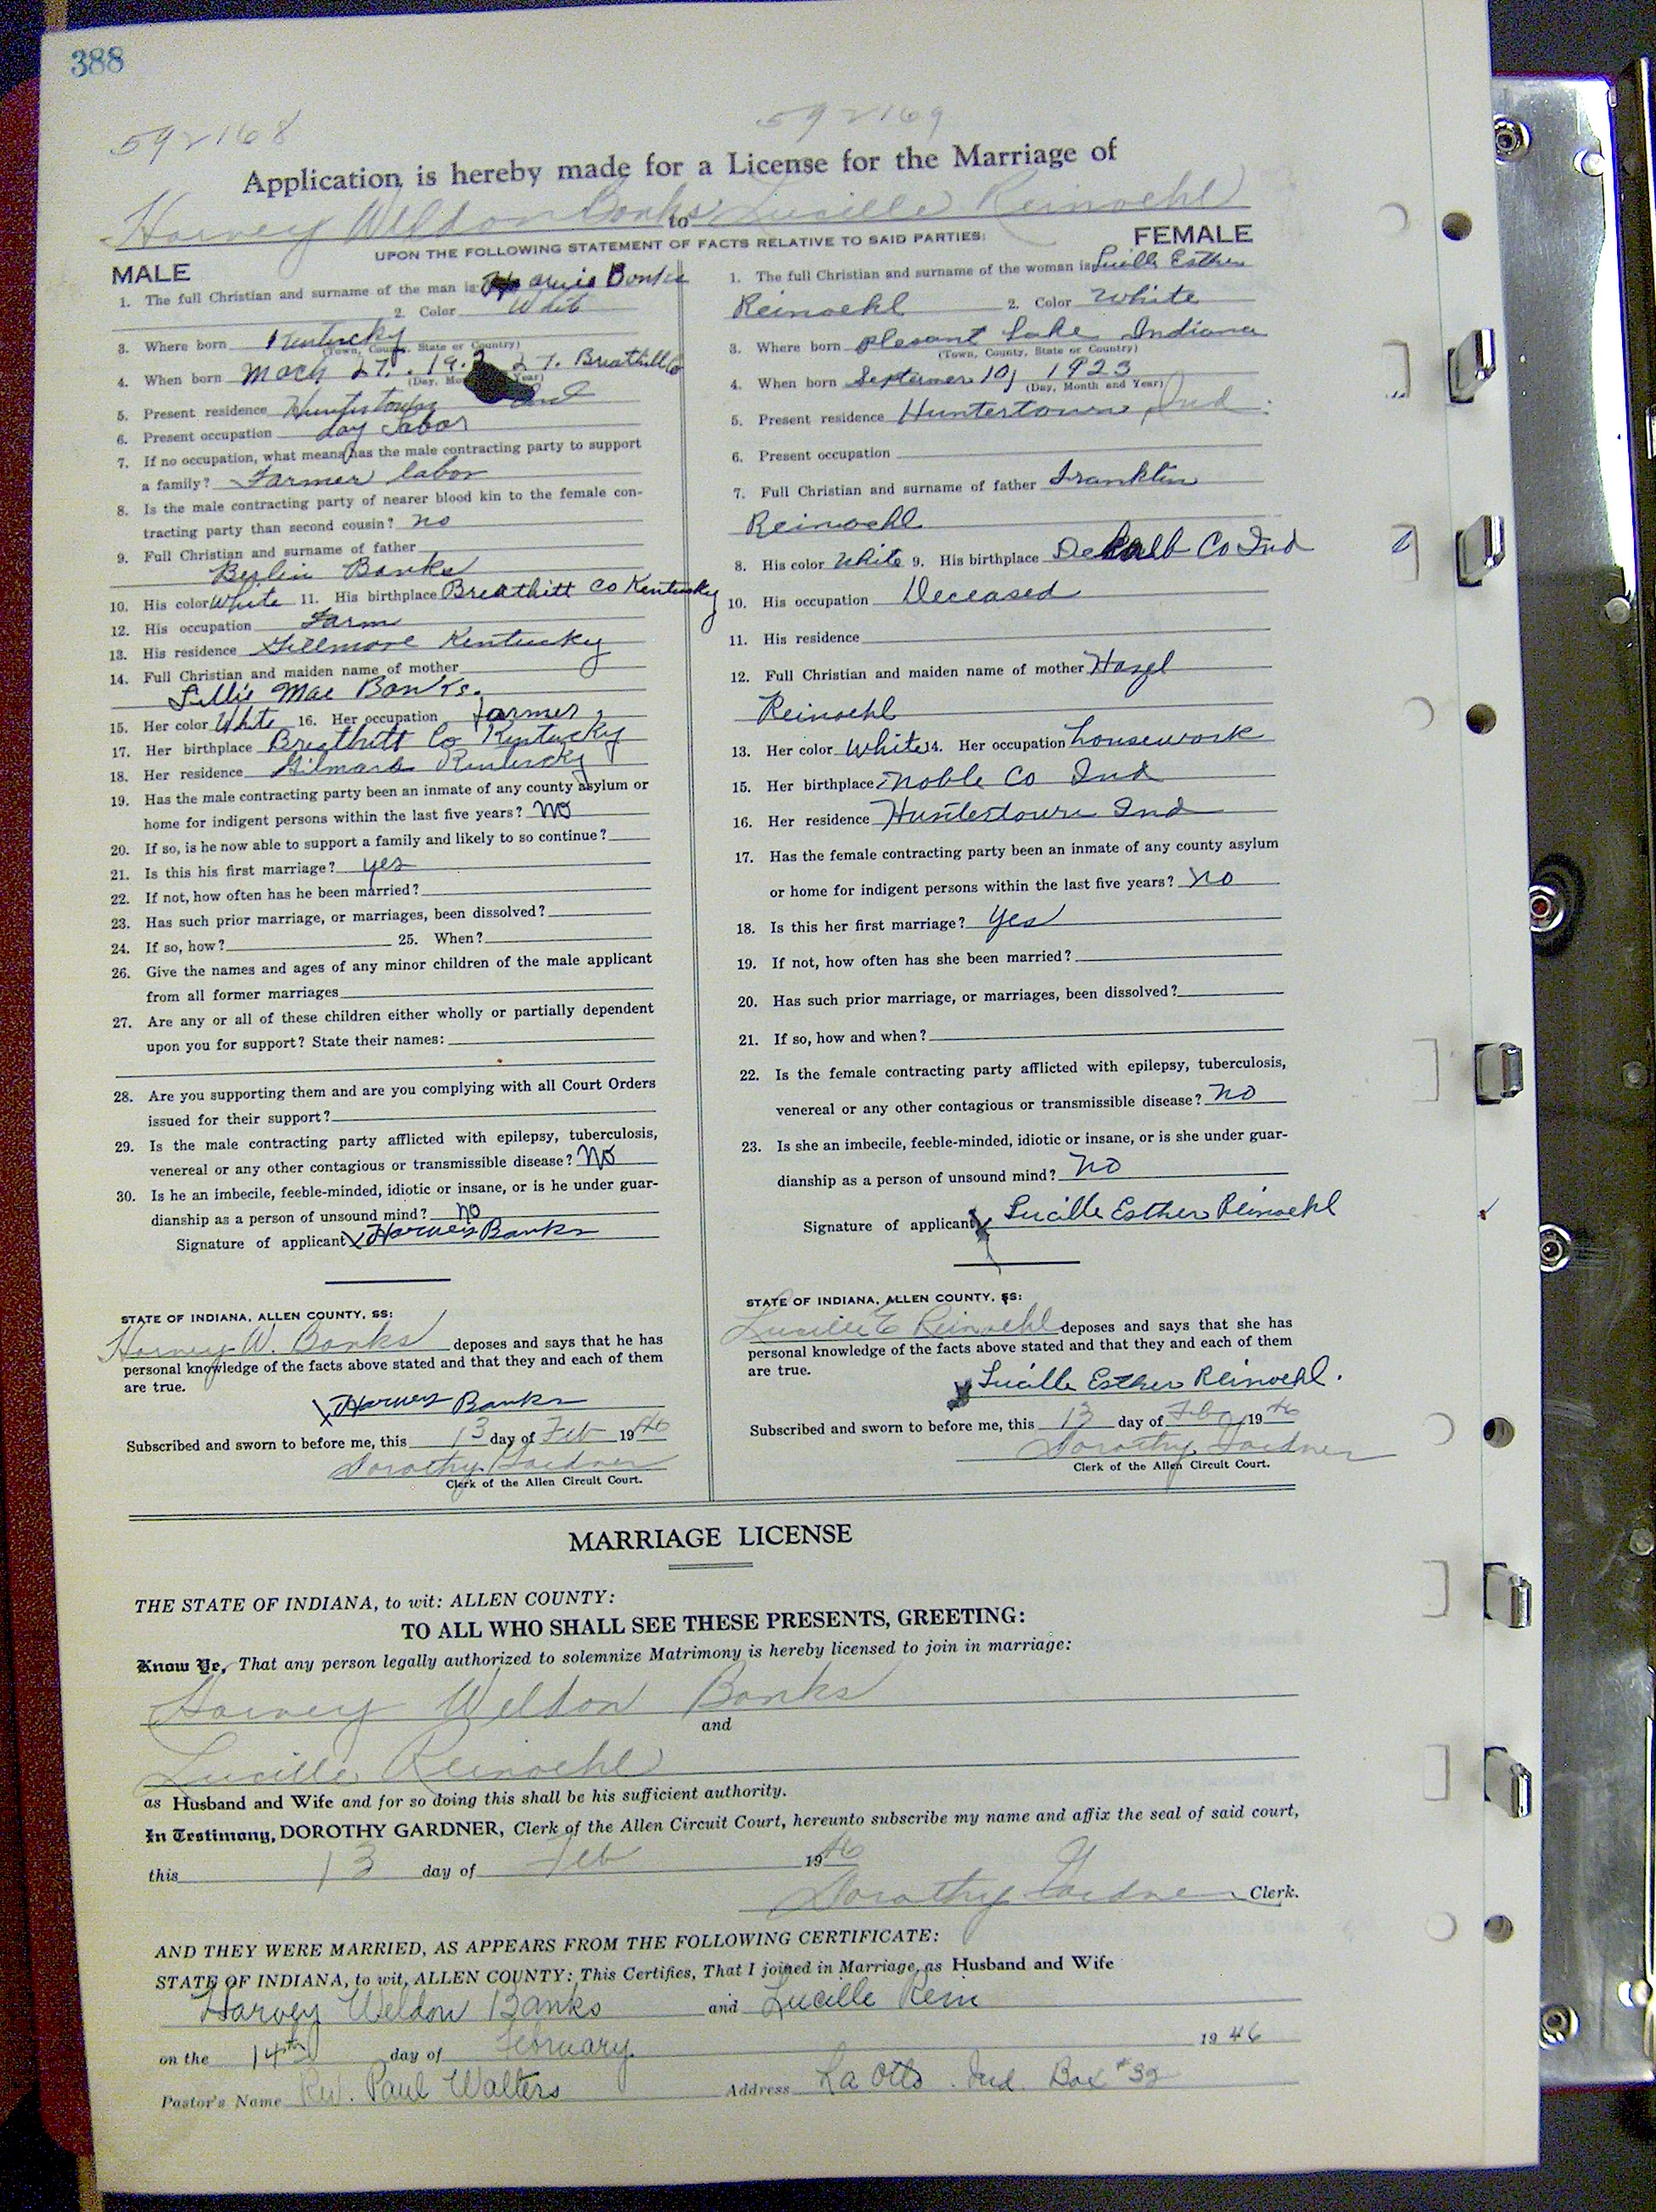 388
592168 592169
Application is hereby made for a License for the Marriage of
Harvey Weldon Banks to Lucille Reinoehl
UPON THE FOLLOWING STATEMENT OF FACTS RELATIVE TO SAID PARTIES:
MALE
1. The full Christian and surname of the man is Banks
2. Color White
3. Where born Kentucky
(Town, County, State or Country)
4. When born Mach 27. 27. Breathitt Co
(Day, Month and Year)
5. Present residence Huntertown Ind
6. Present occupation day labor
7. If no occupation, what means has the male contracting party to support
a family? Farmer labor
8. Is the male contracting party of nearer blood kin to the female con-
tracting party than second cousin? no
9. Full Christian and surname of father
Berlin Banks
10. His color White 11. His birthplace Breathitt Co Kentucky
12. His occupation Farm
13. His residence Gillmore Kentucky
14. Full Christian and maiden name of mother
Lillie Mae Banks.
15. Her color White 16. Her occupation farmer
17. Her birthplace Breathitt Co Kentucky
18. Her residence Kentucky
19. Has the male contracting party been an inmate of any county asylum or
home for indigent persons within the last five years? no
20. If so, is he now able to support a family and likely to so continue?
21. Is this his first marriage? yes
22. If not, how often has he been married?
23. Has such prior marriage, or marriages, been dissolved?
24. If so, how? 25. When?
26. Give the names and ages of any minor children of the male applicant
from all former marriages
27. Are any or all of these children either wholly or partially dependent
upon you for support? State their names:
28. Are you supporting them and are you complying with all Court Orders
issued for their support?
29. Is the male contracting party afflicted with epilepsy, tuberculosis,
venereal or any other contagious or transmissible disease? No
30. Is he an imbecile, feeble-minded, idiotic or insane, or is he under guar-
dianship as a person of unsound mind? no
Signature of applicant X Harvey Banks
STATE OF INDIANA, ALLEN COUNTY, SS:
Harvey W. Banks deposes and says that he has
personal knowledge of the facts above stated and that they and each of them
are true.
X Harvey Banks
Subscribed and sworn to before me, this 13 day of Feb 1946
Dorothy Gardner
Clerk of the Allen Circuit Court.
FEMALE
1. The full Christian and surname of the woman is Lucille Esther
Reinoehl 2. Color White
3. Where born Plesant Lake Indiana
(Town, County, State or Country)
4. When born Septemer 10, 1923
(Day, Month and Year)
5. Present residence Huntertown, Ind.
6. Present occupation
7. Full Christian and surname of father Franklin
Reinoehl
8. His color White 9. His birthplace Dekalb Co Ind
10. His occupation Deceased
11. His residence
12. Full Christian and maiden name of mother Hazel
Reinoehl
13. Her color White 14. Her occupation housework
15. Her birthplace Noble Co Ind
16. Her residence Huntertown Ind
17. Has the female contracting party been an inmate of any county asylum
or home for indigent persons within the last five years? no
18. Is this her first marriage? yes
19. If not, how often has she been married?
20. Has such prior marriage, or marriages, been dissolved?
21. If so, how and when?
22. Is the female contracting party afflicted with epilepsy, tuberculosis,
venereal or any other contagious or transmissible disease? no
23. Is she an imbecile, feeble-minded, idiotic or insane, or is she under guar-
dianship as a person of unsound mind? no
Signature of applicant X Lucille Esther Reinoehl
STATE OF INDIANA, ALLEN COUNTY, SS:
Lucille E Reinoehl deposes and says that she has
personal knowledge of the facts above stated and that they and each of them
are true.
X Lucille Esther Reinoehl.
Subscribed and sworn to before me, this 13 day of Feb 1946
Dorothy Gardner
Clerk of the Allen Circuit Court.
MARRIAGE LICENSE
THE STATE OF INDIANA, to wit: ALLEN COUNTY:
TO ALL WHO SHALL SEE THESE PRESENTS, GREETING:
Know Ye, That any person legally authorized to solemnize Matrimony is hereby licensed to join in marriage:
Harvey Weldon Banks
and
Lucille Reinoehl
as Husband and Wife and for so doing this shall be his sufficient authority.
In Testimony, DOROTHY GARDNER, Clerk of the Allen Circuit Court, hereunto subscribe my name and affix the seal of said court,
this 13 day of Feb 1946
Dorothy Gardner Clerk.
AND THEY WERE MARRIED, AS APPEARS FROM THE FOLLOWING CERTIFICATE:
STATE OF INDIANA, to wit, ALLEN COUNTY: This Certifies, That I joined in Marriage, as Husband and Wife
Harvey Weldon Banks and Lucille Rein
on the 14th day of February 1946
Pastor's Name Rev. Paul Walters Address La Otto Ind. Box #32